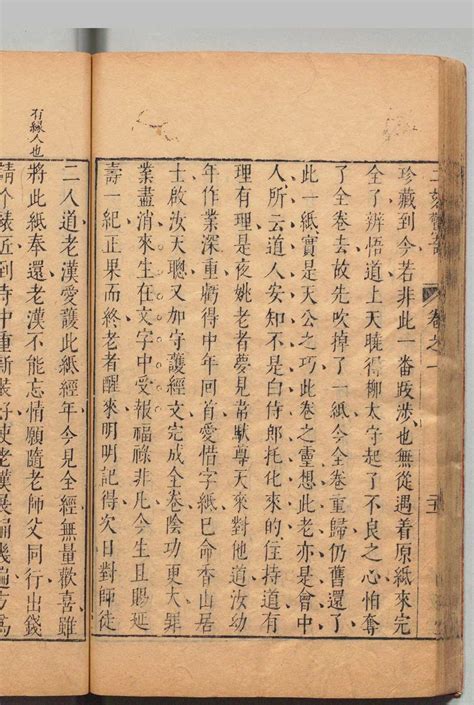 二刻驚奇 卷之一
珍藏到今若非此一番跋涉也無從遇着原紙來完
全了辨悟道上天曉得柳太守起了不良心怕奪
了全卷去故先吹掉了一紙今全卷重歸仍舊還了
此一紙實是天公之巧此卷之靈想此老亦是會中
人所云道人安知不是白侍郎托化來的住持道有
理有理是夜姚老者夢見韋馱尊天來對他道汝幼
年作業深重虧得中年回首愛惜字紙已命香山居
士啟汝天聰又加守護經文完成全卷陰功更大罪
業盡消來生在文字中受報福祿非凡今生且賜延
壽一紀正果而終老者醒來明明記得次日對師徒
二人道老漢愛護此紙經年今見全經無量歡喜雖
將此紙奉還老漢不能忘情願隨老師父同行出錢
請个裱匠到寺中重新裝好使老漢展誦幾遍方為
有緣人也